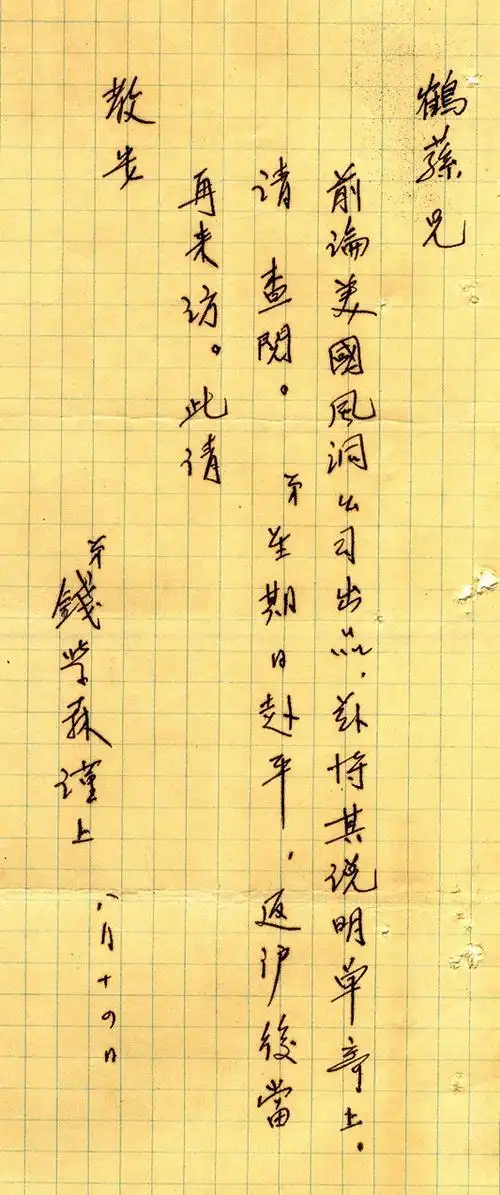 鶴蓀兄
前論美國風洞公司出品，茲將其说明单寄上。
请 查閱。 弟星期日赴平，返沪後當
再来访。此请
教安
弟 錢学森謹上 八月十四日